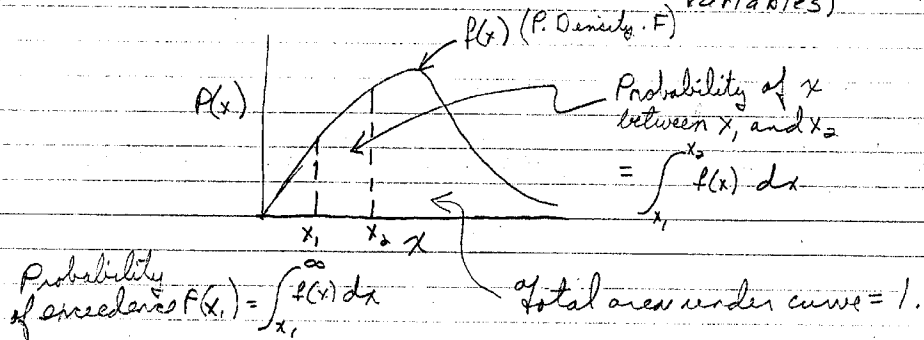 variables)
f(x) (P. Density. F)
P(x)
Probability of x
between x₁ and x₂
= ∫_{x₁}^{x₂} f(x) dx
x₁ x₂ x
Probability
of exceedence P(x₁) = ∫_{x₁}^{∞} f(x) dx
Total area under curve = 1.